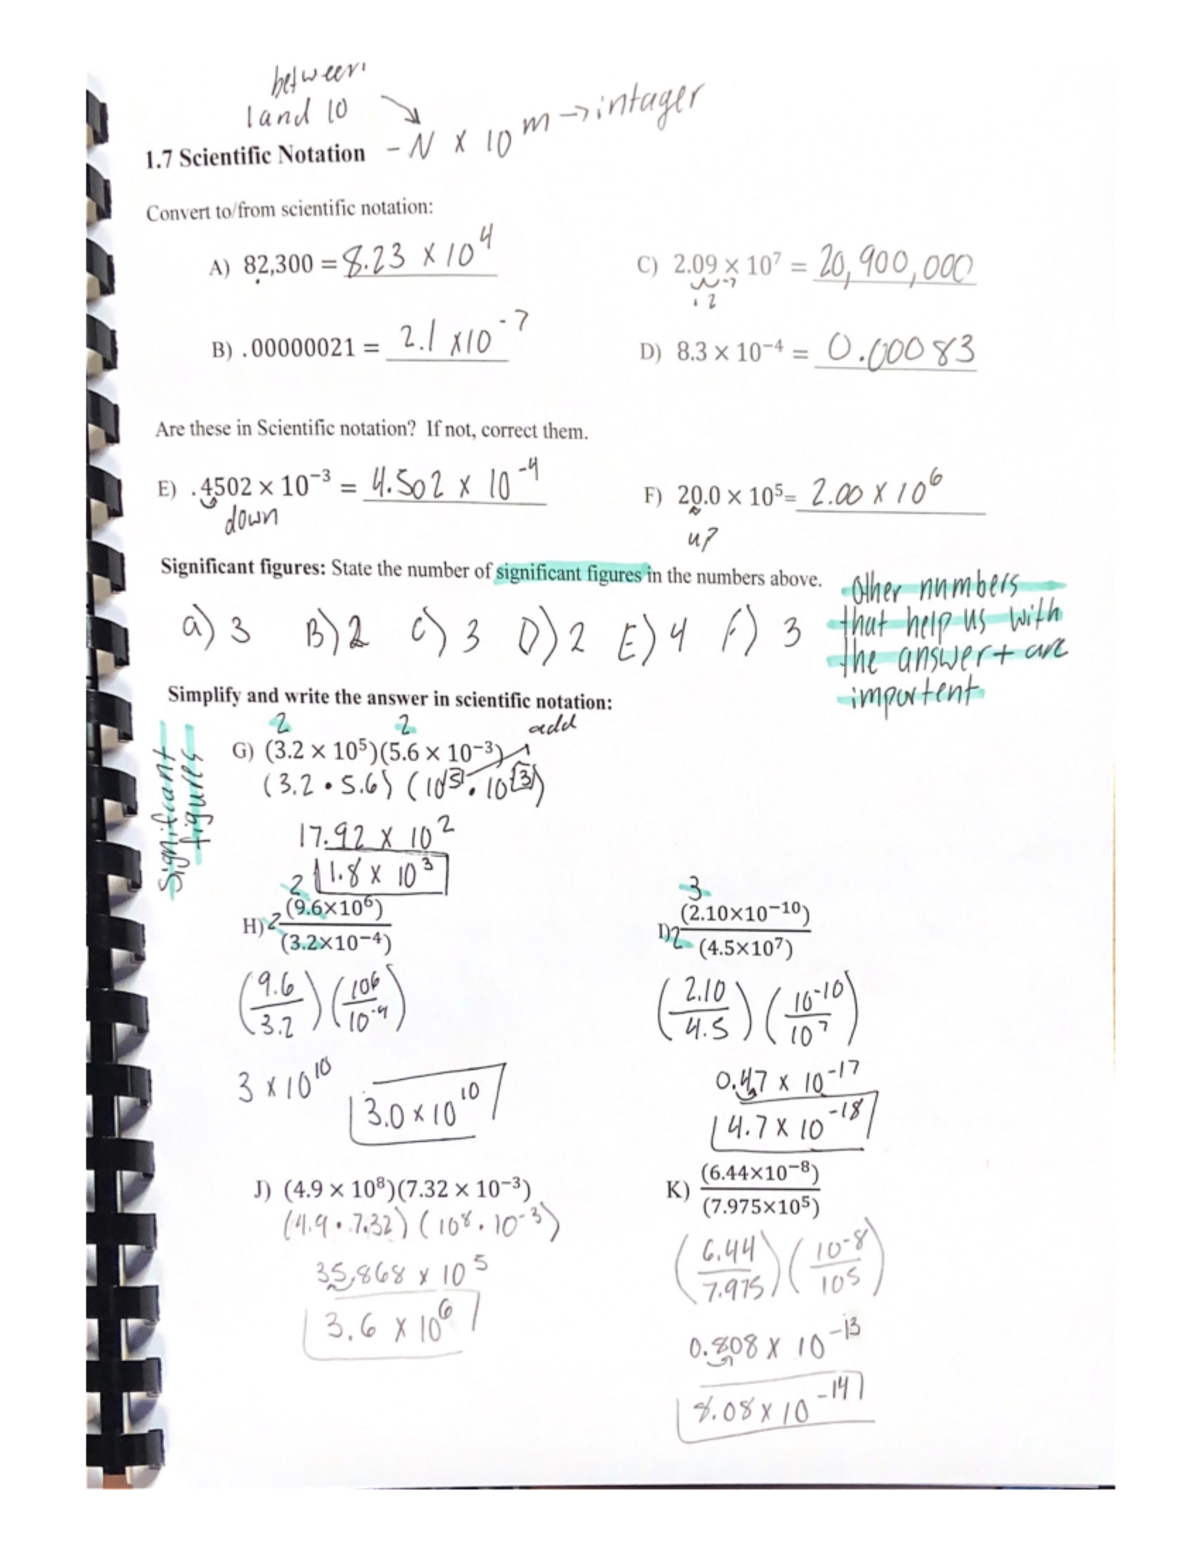 between
1 and 10
1.7 Scientific Notation - N × 10^m → intager
Convert to/from scientific notation:
A) 82,300 = 8.23 × 10^4
C) 2.09 × 10^7 = 20,900,000
B) .00000021 = 2.1 ×10^-7
D) 8.3 × 10^-4 = 0.00083
Are these in Scientific notation? If not, correct them.
E) .4502 × 10^-3 = 4.502 × 10^-4
down
F) 20.0 × 10^5= 2.00 × 10^6
up
Significant figures: State the number of significant figures in the numbers above.
a) 3 B) 2 C) 3 D) 2 E) 4 F) 3
Other numbers
that help us with
the answer + are
importent
Simplify and write the answer in scientific notation:
Significant
figures
2 2 add
G) (3.2 × 10^5)(5.6 × 10^-3)
(3.2 • 5.6) (10^5 • 10^-3)
17.92 × 10^2
1.8 × 10^3
2
H) 2 (9.6×10^6)
(3.2×10^-4)
(9.6/3.2) (10^6/10^-4)
3 × 10^10
3.0 × 10^10
3
I) 2 (2.10×10^-10)
(4.5×10^7)
(2.10/4.5) (10^-10/10^7)
0.47 × 10^-17
4.7 × 10^-18
J) (4.9 × 10^8)(7.32 × 10^-3)
(4.9 • 7.32) (10^8 • 10^-3)
35.868 × 10^5
3.6 × 10^6
K) (6.44×10^-8)
(7.975×10^5)
(6.44/7.975) (10^-8/10^5)
0.808 × 10^-13
8.08 × 10^-14